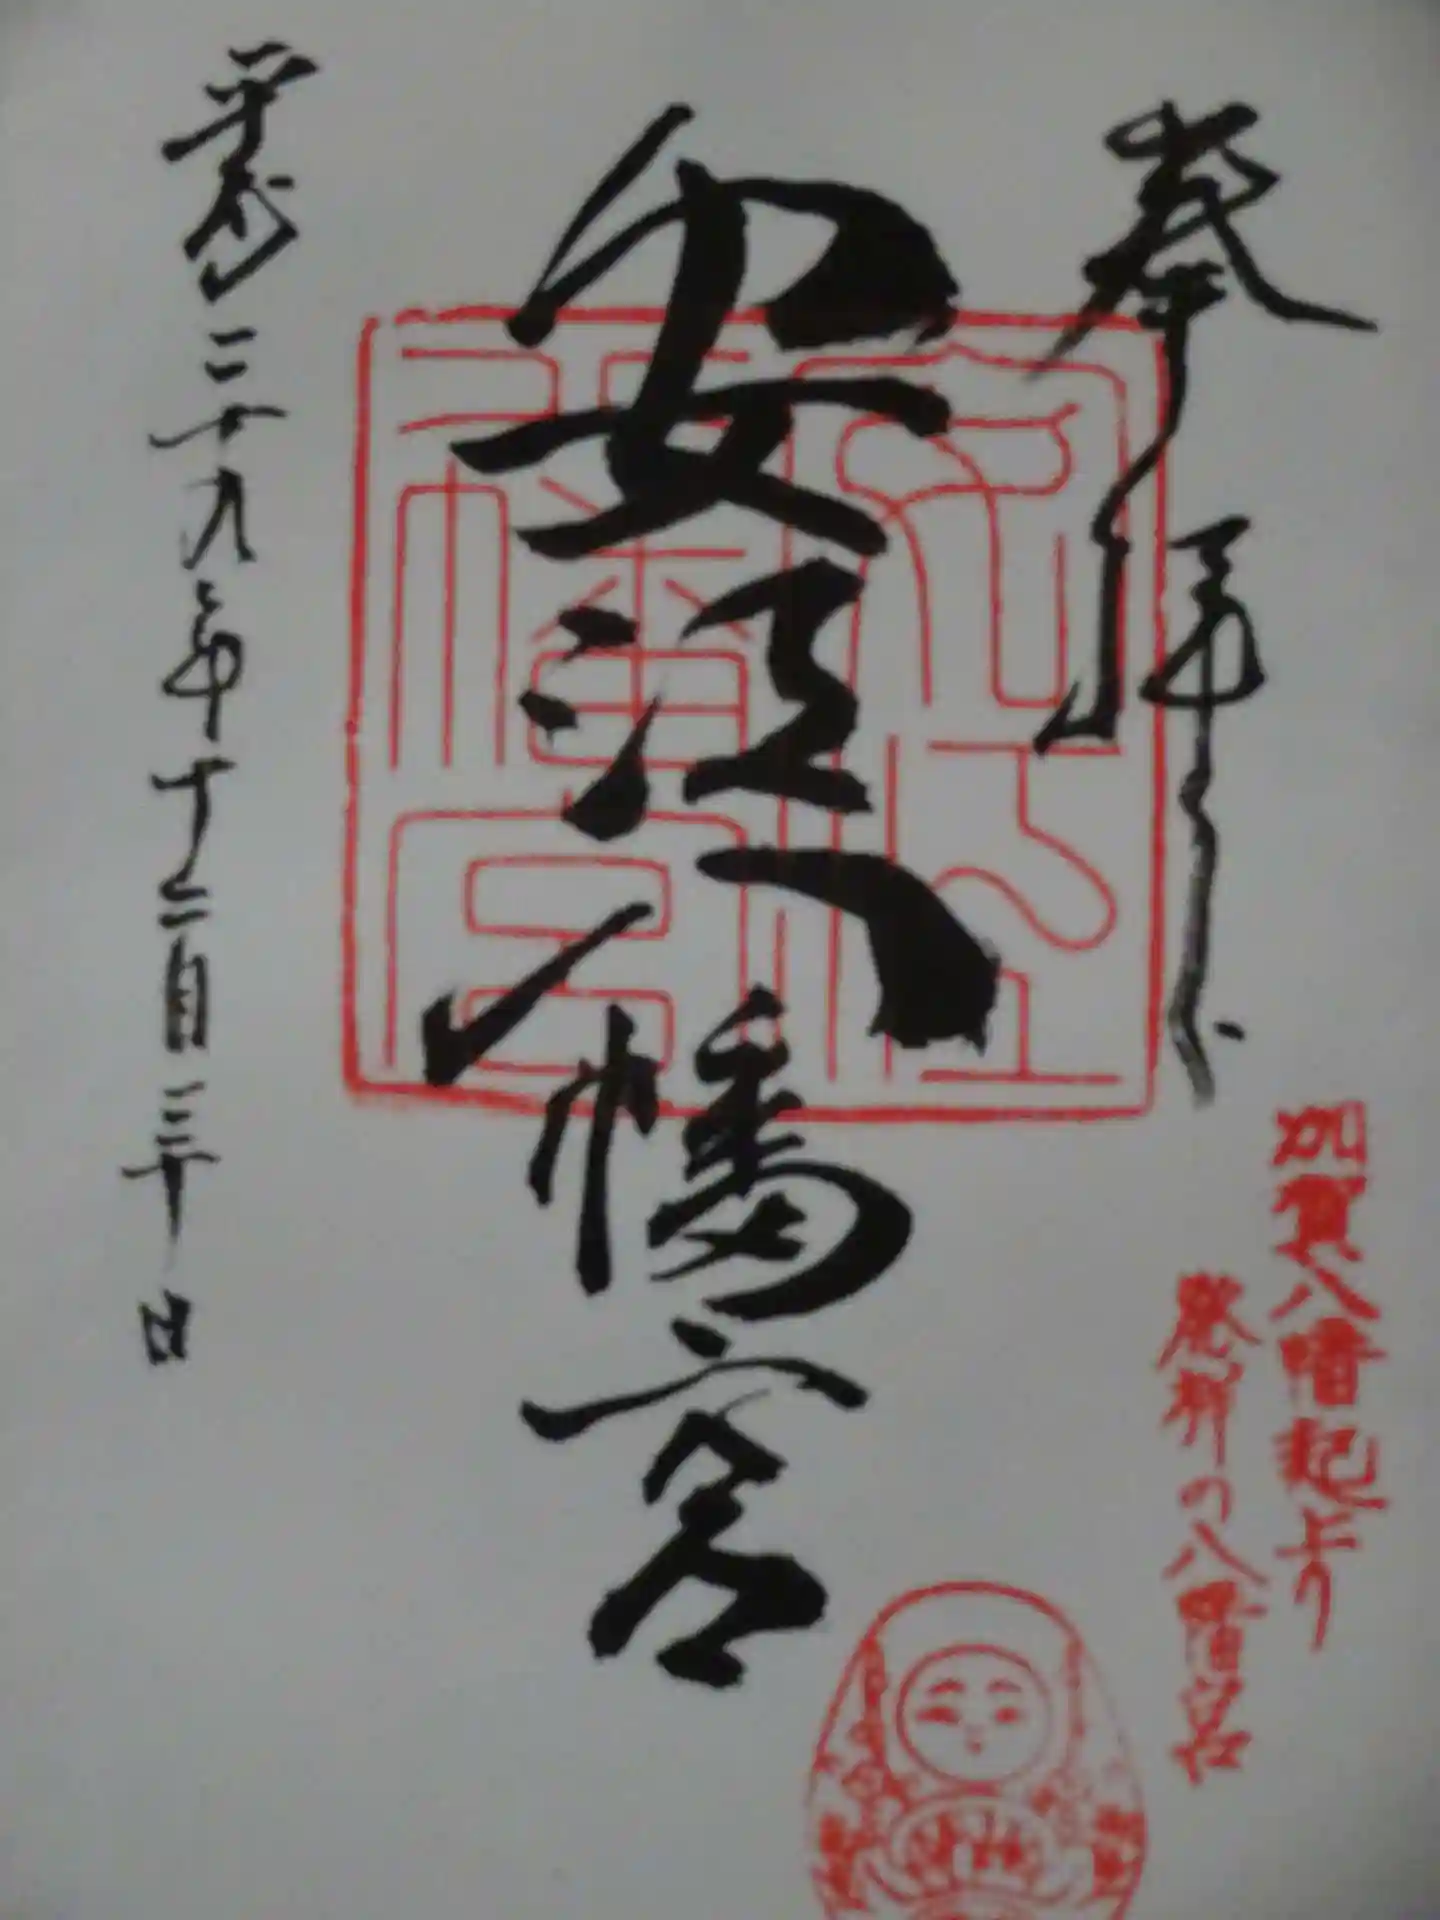 奉拝
加賀八幡起上り
発祥の八幡宮
安江八幡宮
平成二十九年十二月三十日